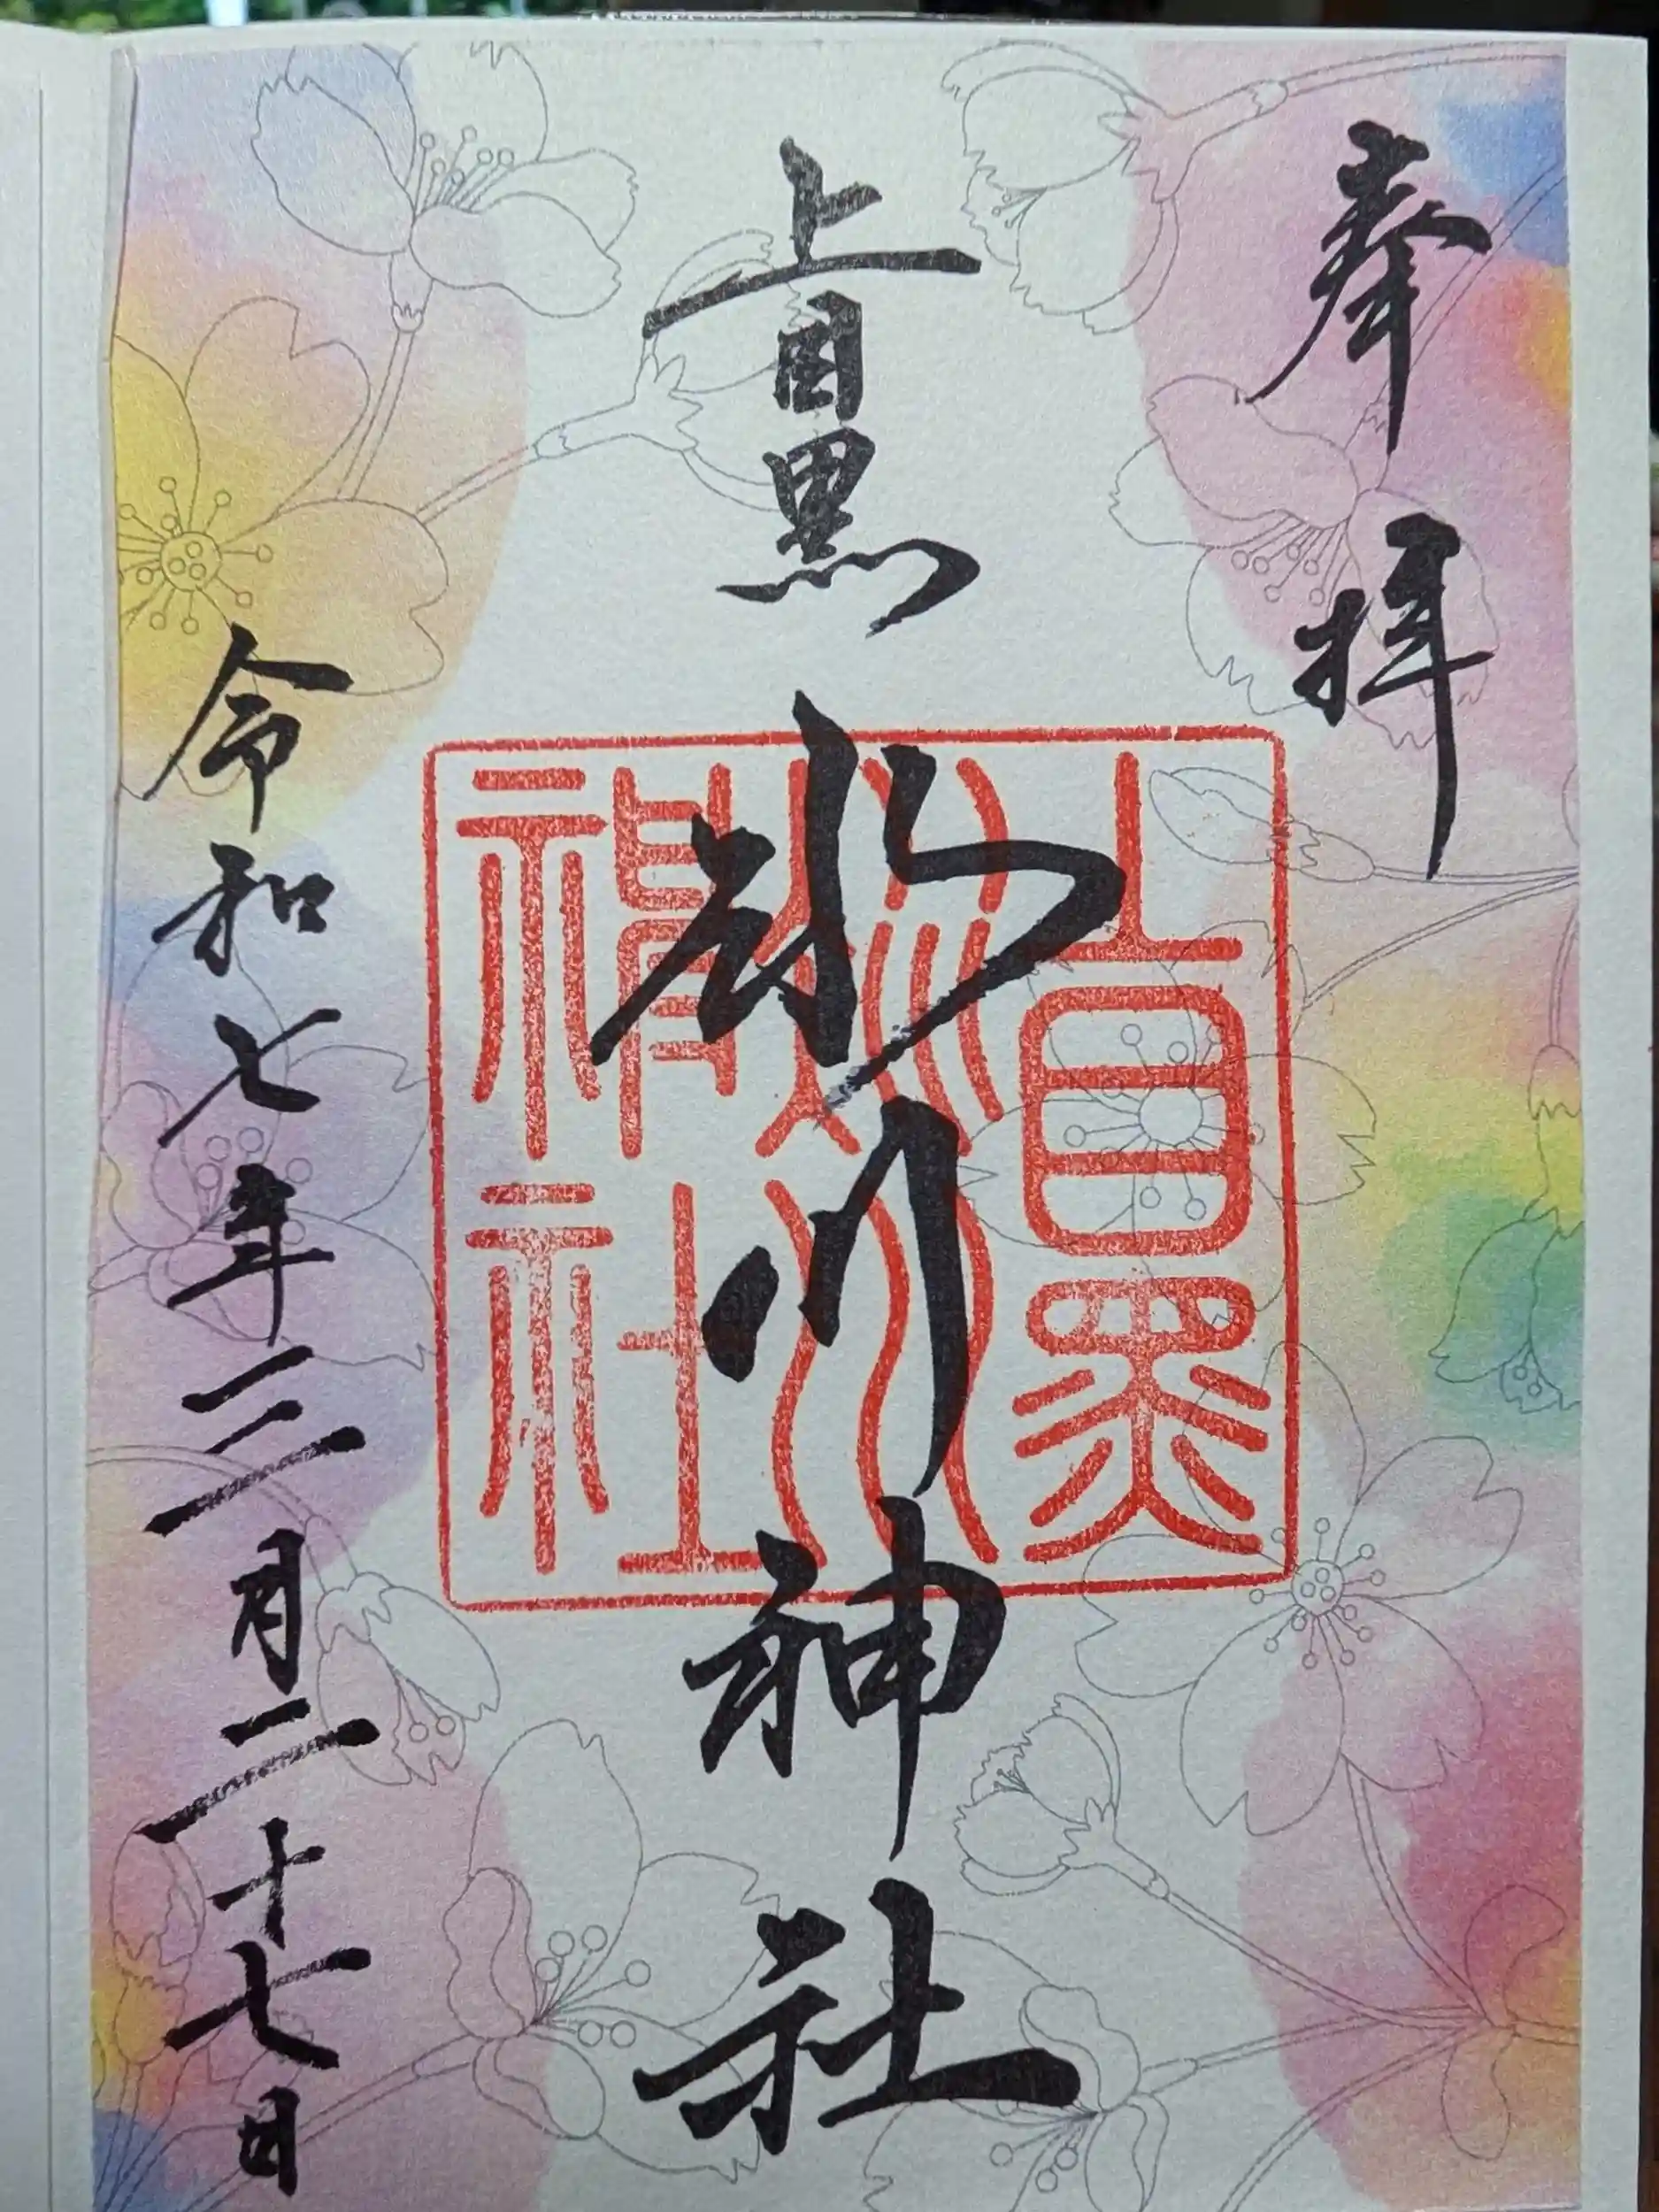 奉拝
上目黒氷川神社
上目黒氷川神社
令和七年三月二十七日